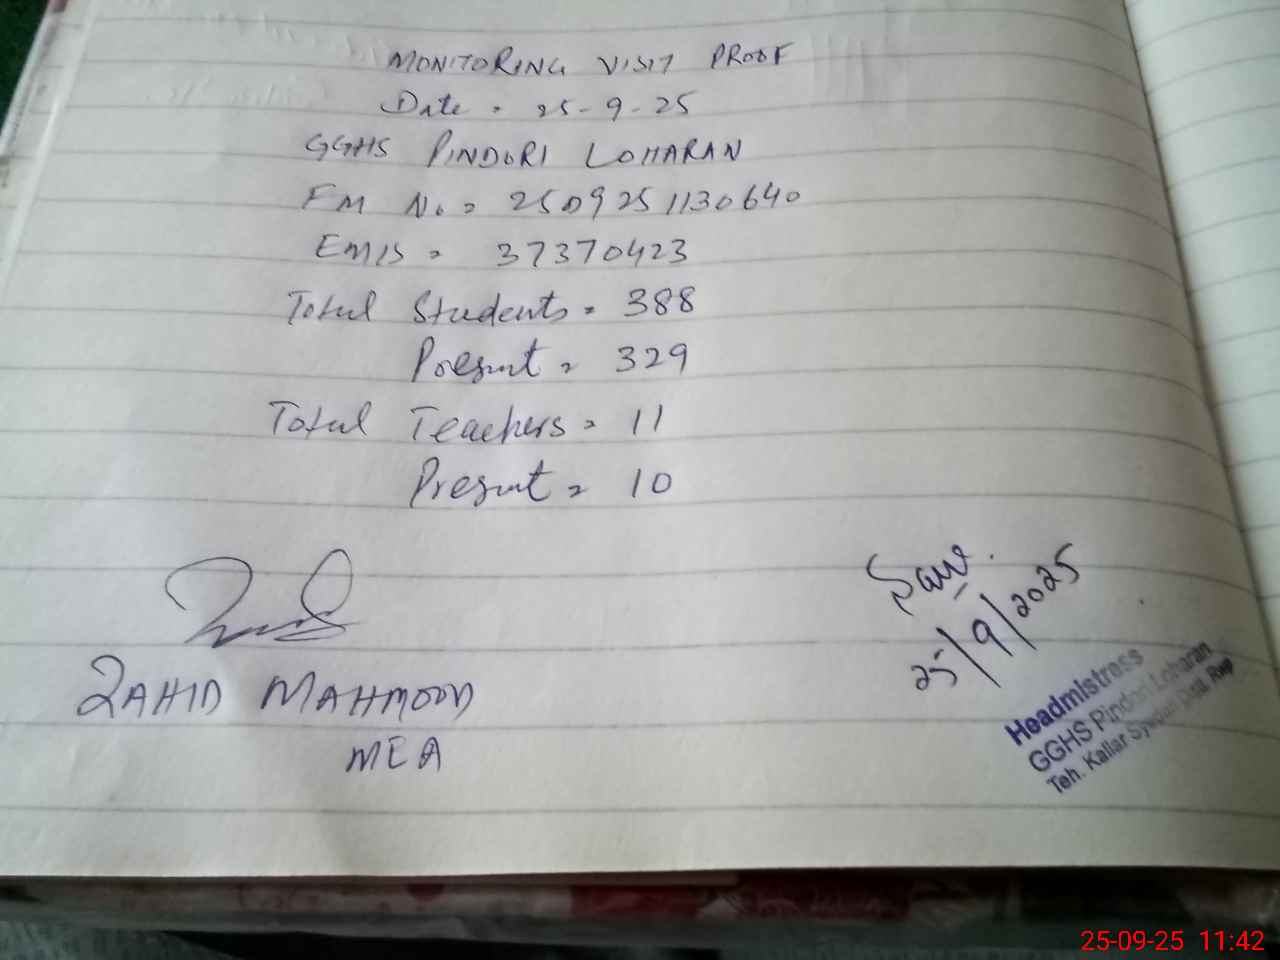 MONITORING VISIT PROOF
Date = 25-9-25
GGHS PINDORI LOHARAN
FM No = 2509251130640
EMIS = 37370423
Total Students = 388
Present = 329
Total Teachers = 11
Present = 10
ZAHID MAHMOOD
MEA
25/9/2025
Headmistress
GGHS Pindori Loharan
Teh. Kallar Syedan Distt. Rwp
25-09-25 11:42